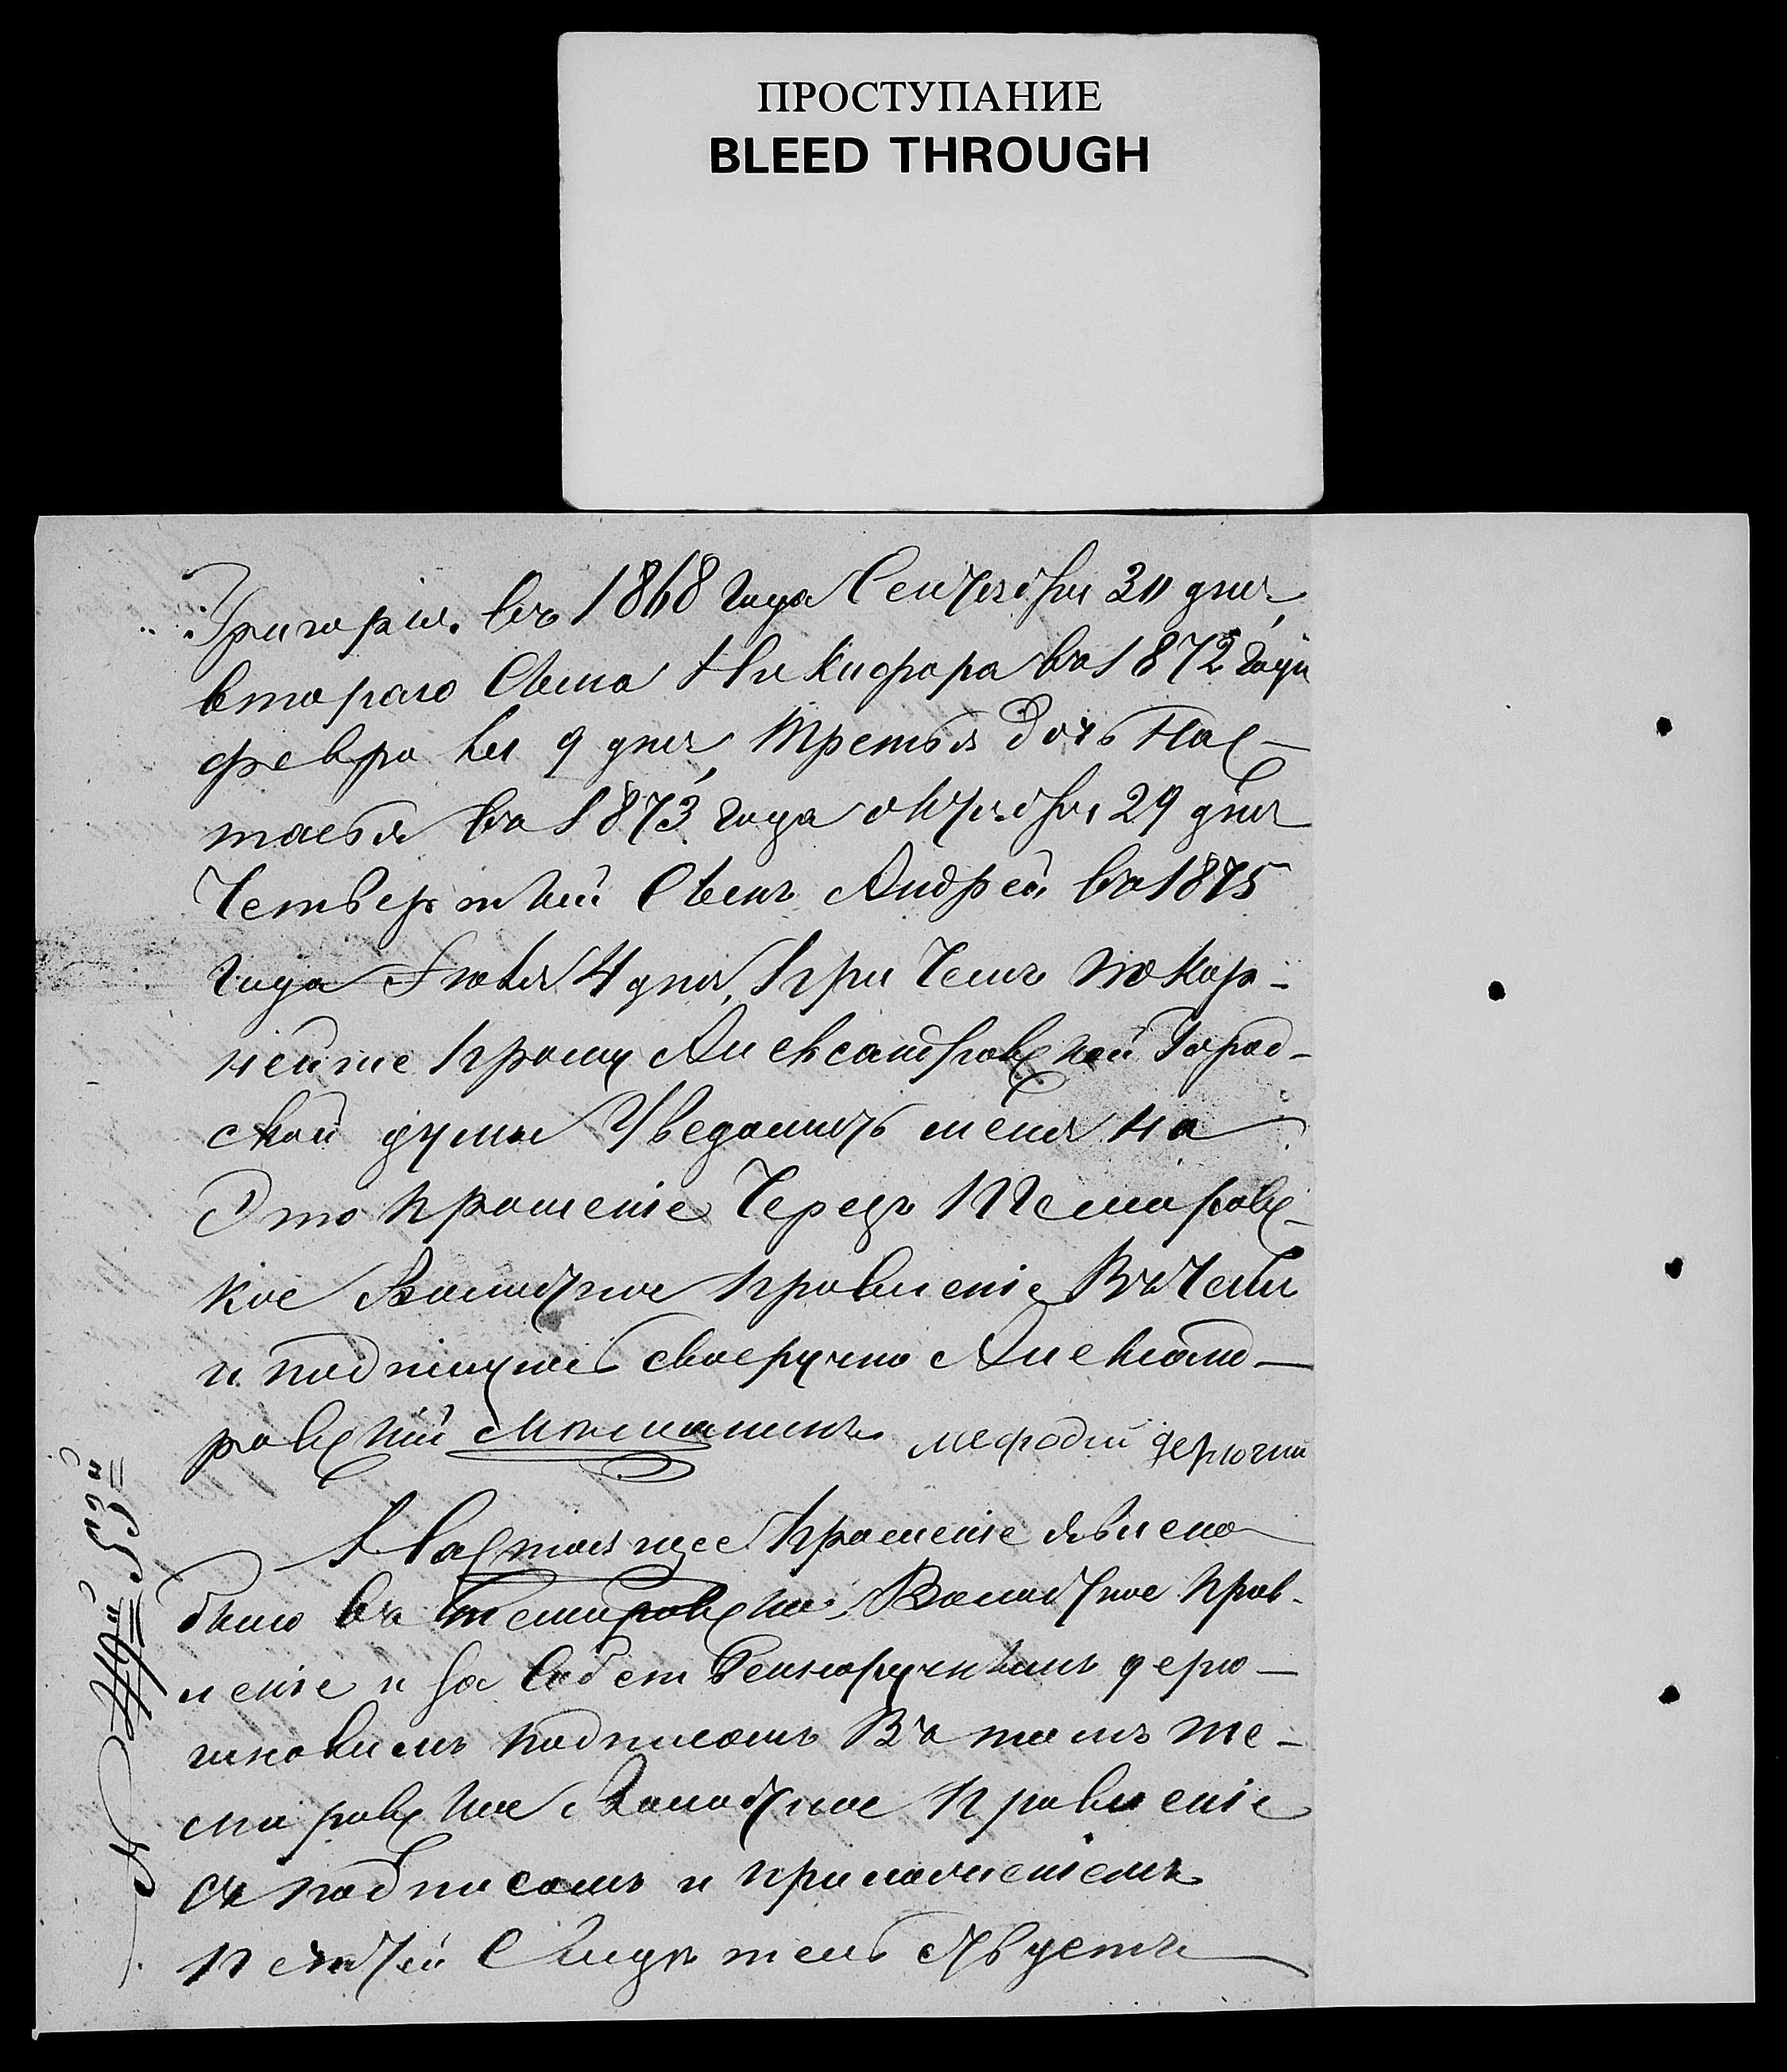 ПРОСТУПАНИЕ
BLEED THROUGH
Григорія. въ 1868 года Сентября 30 дня,
втораго Сына Никифора въ 1872 года
февраля 9 дня, третья дочь Нас-
тасья въ 1873 года октября 29 дня
Четвертый Сынъ Андрей въ 1875
года Іюля 4 дня, при чемъ покор-
нейше прошу Александровской Город-
ской думы Уведомить меня на
Это прошеніе Черезъ Темировс-
кое Волостное правленіе Въ Чемъ
и подпишусь своеручно Александ-
ровскій Мѣщанинъ мефодій дерюгин
Настоящее прошеніе явлено
было въ темировское Волостное прав-
леніе и за собственноручнымъ дерю-
гиновымъ подписомъ Въ томъ те-
мировское Волостное правленіе
съ подписомъ и приложеніемъ
печатей Свидѣтельствуетъ
№ 53й